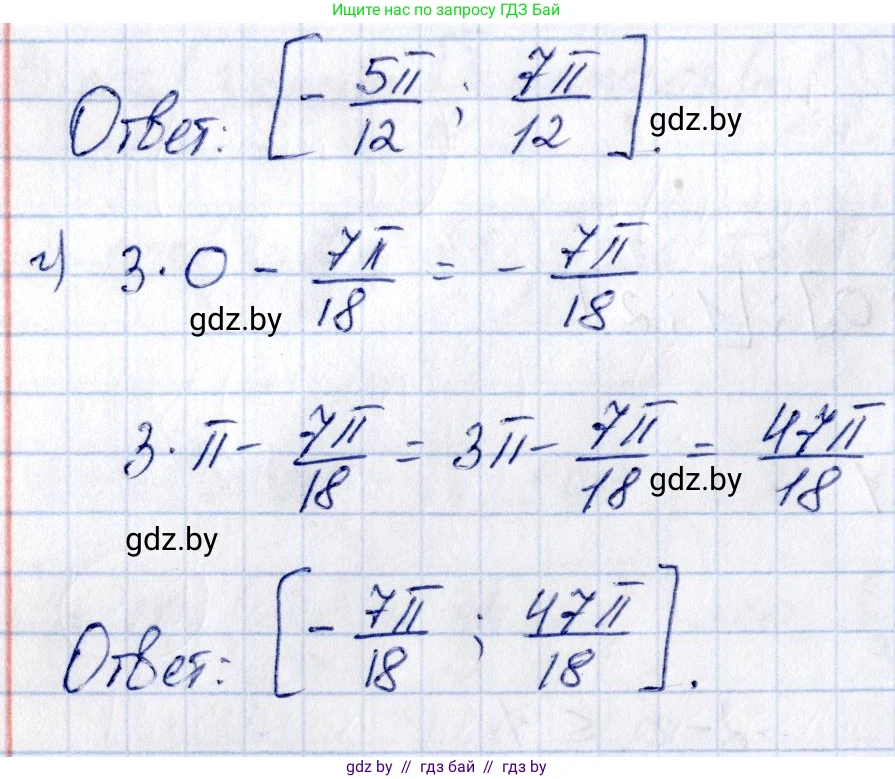 Ищите нас по запросу ГДЗ Бай
Ответ: [-5π/12; 7π/12].
gdz.by
г) 3·0 - 7π/18 = -7π/18
gdz.by
3·π - 7π/18 = 3π - 7π/18 = 47π/18
gdz.by
gdz.by
Ответ: [-7π/18; 47π/18].
gdz.by // гдз бай // гдз by